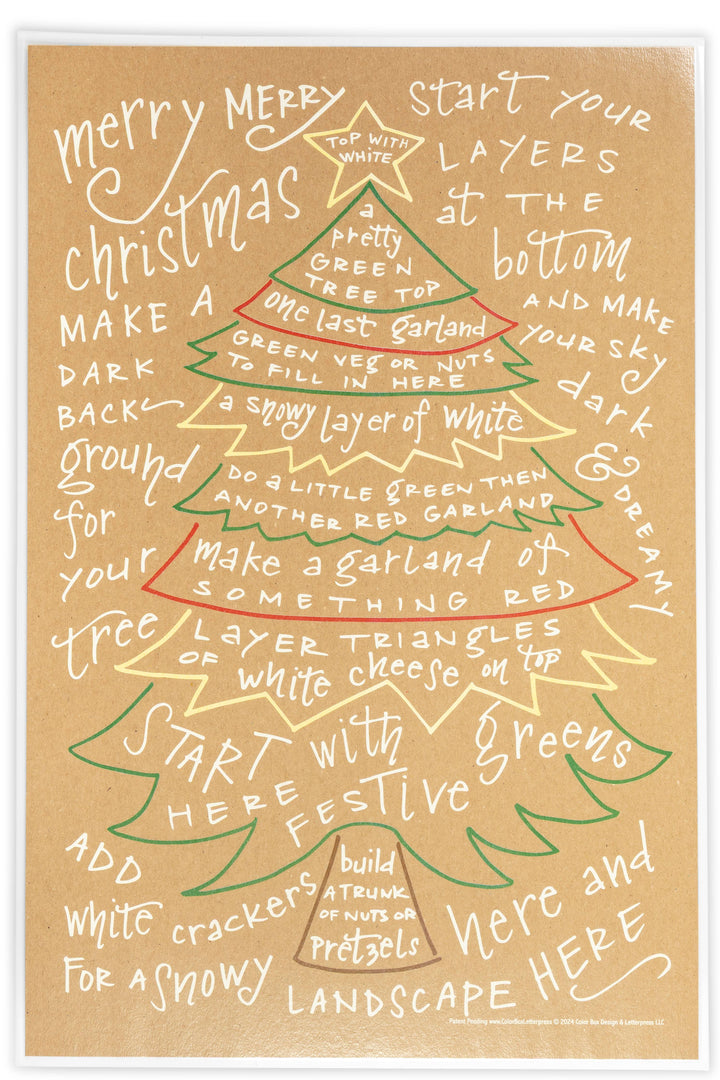 merry MERRY
christmas
start YOUR
LAYERS
at THE
bottom
AND MAKE
YOUR SKY
dark
& DREAMY
MAKE A
DARK
BACK
ground
for
your
tree
TOP WITH
WHITE
a
pretty
GREEN
TREE TOP
one last garland
GREEN VEG OR NUTS
TO FILL IN HERE
a snowy layer of white
DO a LITTLE GREEN THEN
ANOTHER RED GARLAND
make a garland of
SOMETHING RED
LAYER TRIANGLES
OF white cheese on top
START with greens
HERE FESTIVE
build
A TRUNK
OF NUTS OR
pretzels
ADD
white crackers
FOR A SNOWY
LANDSCAPE
here and
HERE
Patent Pending www.ColorBoxLetterpress © 2024 Color Box Design & Letterpress LLC